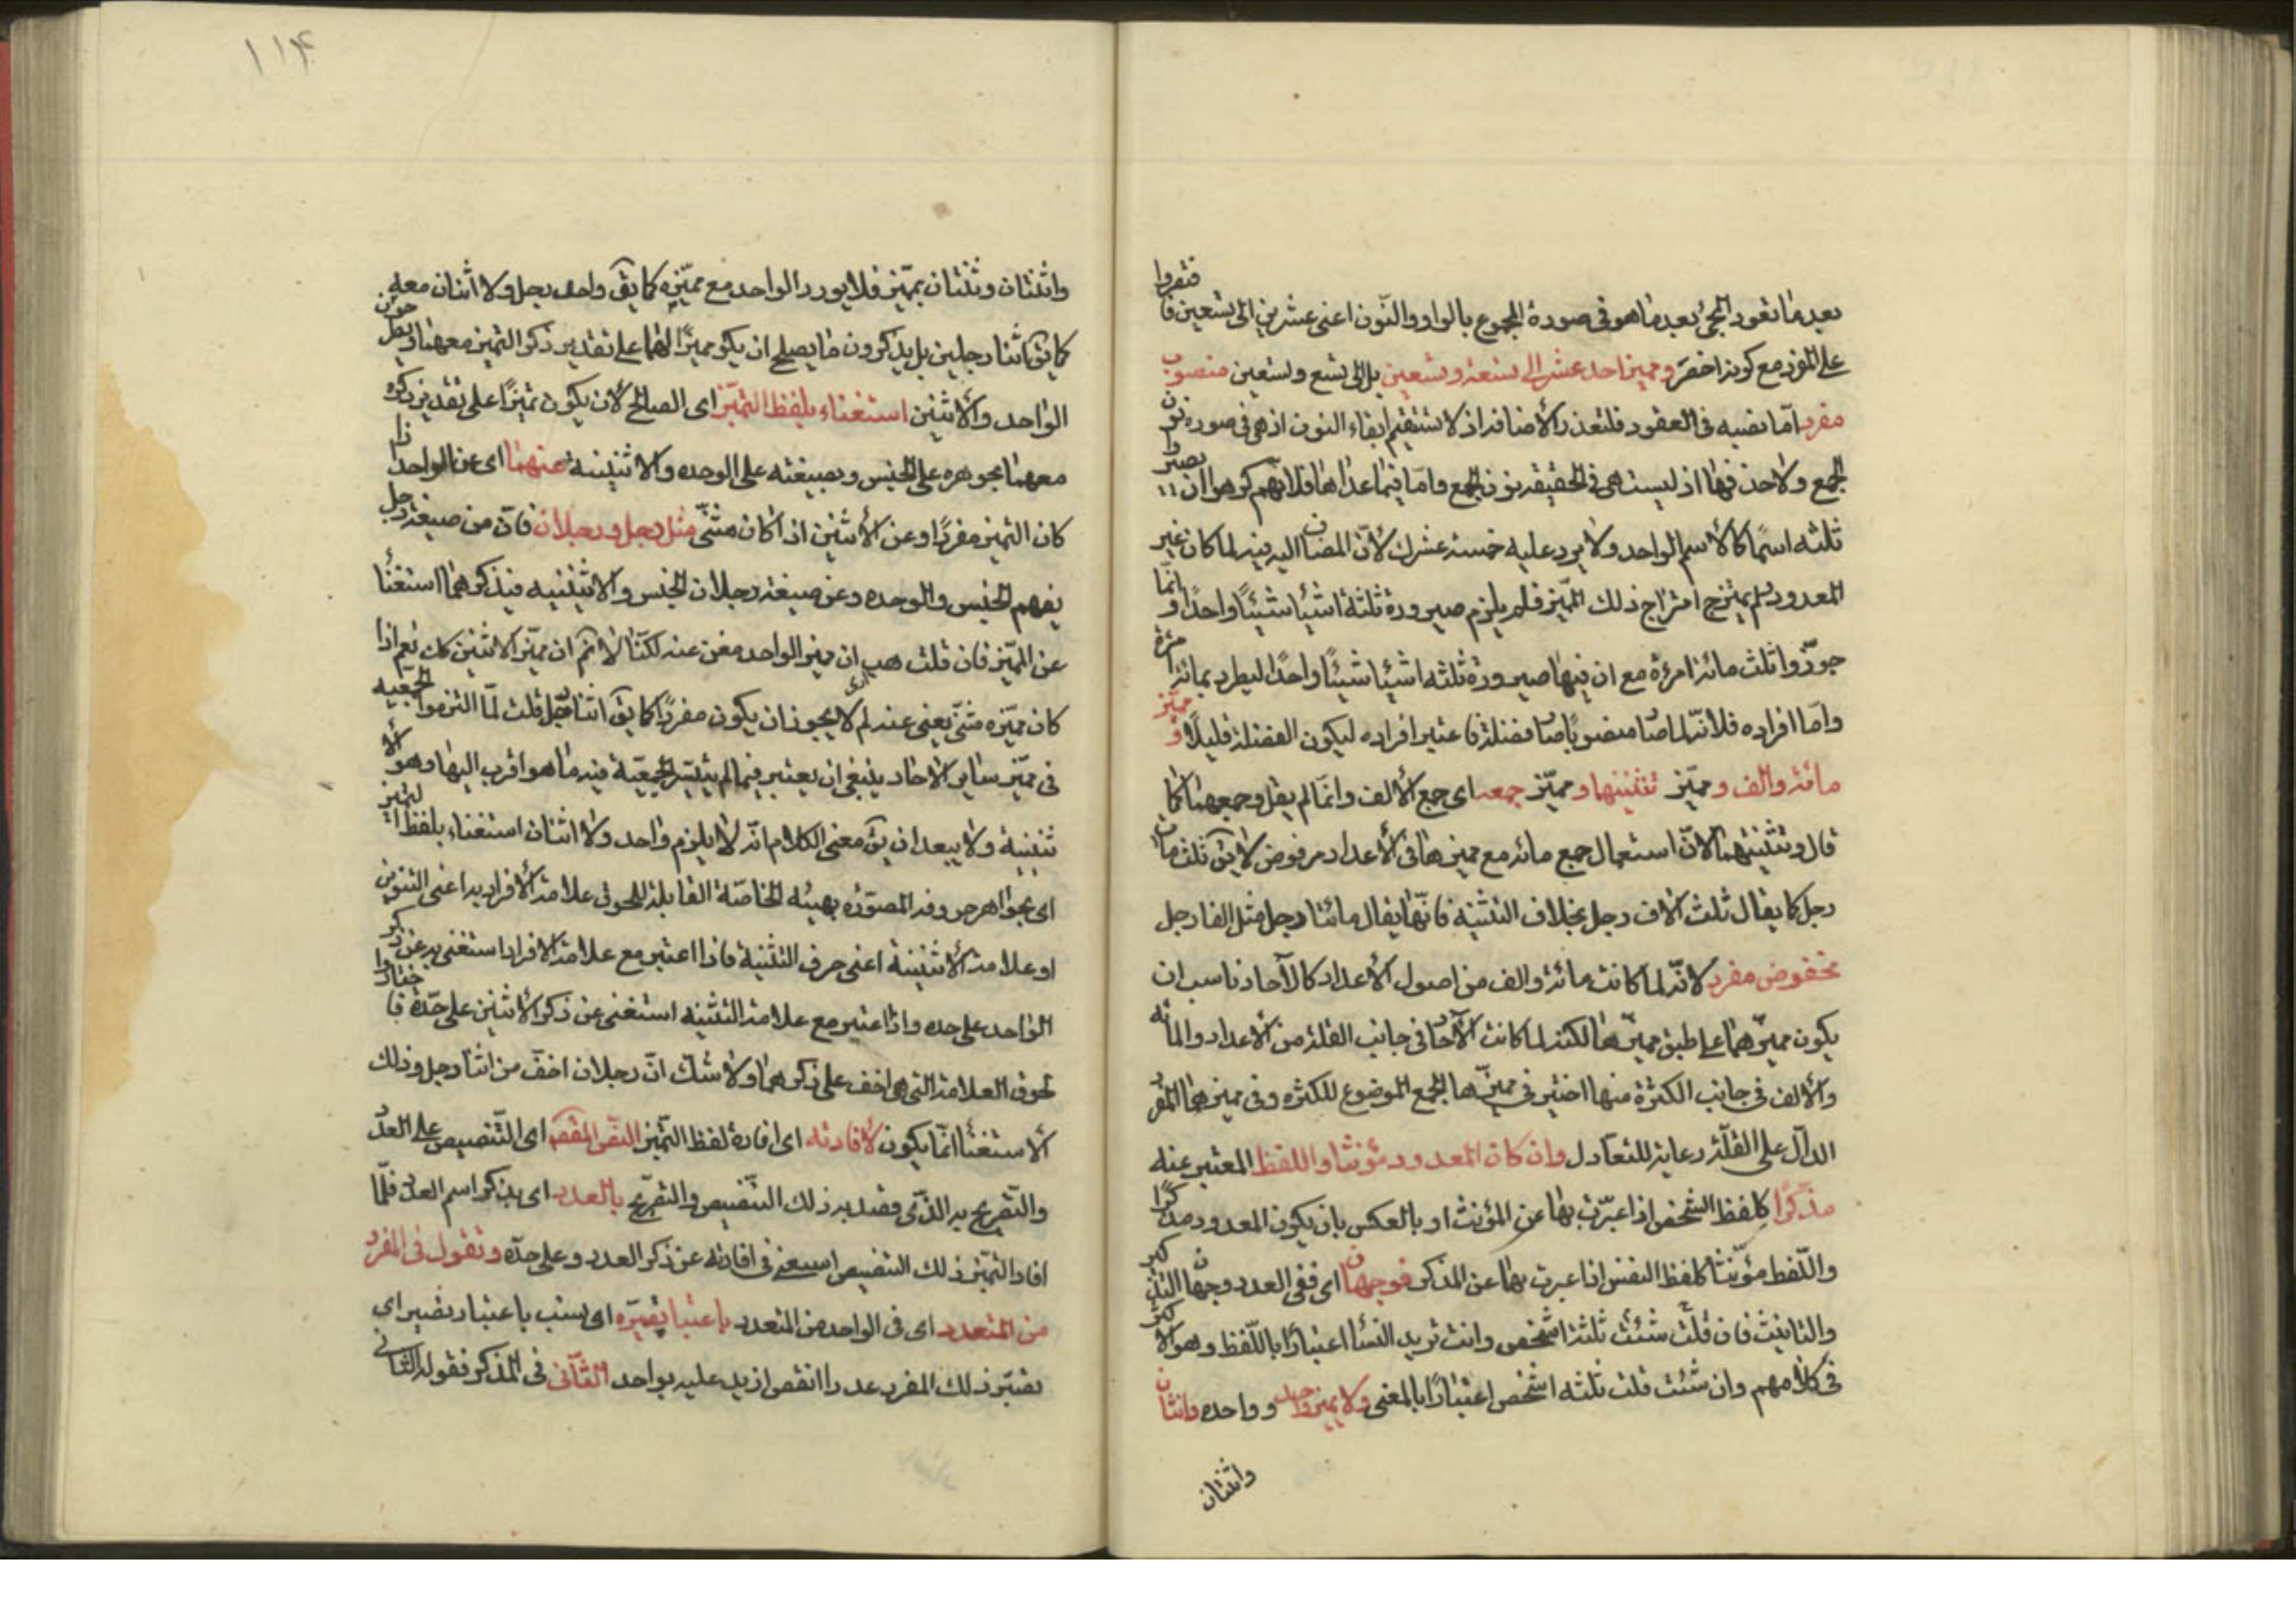 بعد ما تعود المجئ بعد ما هو فى صورة المجموع بالواو والنون اعنى عشرين الى تسعين فاقتصروا
على المفرد مع كونه اخصر ومميز احد عشر الى تسعة وتسعين بل الى تسع وتسعين منصوب
مفرد اما نصبه فى العقود فلتعذر الاضافه اذ لا تستقيم ابقاء النون اذ هى فى صورة نون
الجمع ولا حذفها اذ ليست هى فى الحقيقه نون الجمع واما فيما عداها فلانهم كرهوا ان يصير
ثلثه اسما كالاسم الواحد ولا يرد عليه خمسة عشرك لان المضاف اليه فيه لما كان غير
المعدود لم يمتزج امتزاج ذلك المميز فلم يلزم صيرورة ثلثة اشيا شيئا واحدا وانما
جوزوا ثلث مائة امرءة مع ان فيها صيرورة ثلثه اشيا شيئا واحدا ليطرد بمائة امرءة
واما افراده فلانه لما صار منصوبا صار فضلة فاعتبر افراده ليكون الفضلة قليلا ومميز
مائة والف ومميز تثنيتهما ومميز جمعه اى جمع الالف وانما لم يقل وجمعهما كما
قال وتثنيتهما لان استعمال جمع مائة مع مميزها فى الاعداد مرفوض لا يق ثلث مات
رجل كما يقال ثلث الاف رجل بخلاف التثنية فانها يقال مائتا رجل مثل الفا رجل
مخفوض مفرد لانه لما كانت مائة والف من اصول الاعداد كالآحاد ناسب ان
يكون مميزهما على طبق مميزها لكنه لما كانت الآحاد فى جانب القلة من الاعداد والمائه
والالف فى جانب الكثرة منها اختير فى مميزها الجمع الموضوع للكثره وفى مميزهما المفرد
الدال على القلة رعاية للتعادل وان كان المعدود مؤنثا واللفظ المعتبر عنه
مذكرا كلفظ الشخص اذا عبرت بها عن المؤنث او بالعكس بان يكون المعدود مذكرا
واللفظ مؤنثا كلفظ النفس اذا عبرت بها عن المذكر فوجهان اى ففى العدد وجهان التذكير
والتانيث فان قلت شئت ثلثة اشخص وانت تريد النسا اعتبارا باللفظ وهو الاكثر
فى كلامهم وان شئت قلت ثلثه اشخص اعتبارا بالمعنى ولا يميز واحد وواحده واثنان
واثنتان
١١۴
واثنتان وثنتان بمميز فلا يورد الواحد مع مميزه كما يق واحد رجل ولا اثنان معه
كما يق اثنا رجلين بل يذكرون ما يصلح ان يكون مميزا لهما على تقدير ذكر التميز معهما ويطرحون
الواحد والاثنين استغناء بلفظ التميز اى الصالح لان يكون تميزا على تقدير ذكره
معهما بجوهره على الجنس وبصيغته على الوحده والاثنينية عنهما اى عن الواحد اذا
كان التميز مفردا وعن الاثنين اذا كان مثنى مثل رجل ورجلان فان من صيغة رجل
يفهم الجنس والوحده وعن صيغة رجلان الجنس والاثنينيه فيذكرهما استغنا
عن المميز فان قلت هب ان مميز الواحد مغن عنه لكنا لا نم ان مميز الاثنين كك نعم اذا
كان مميزه مثنى يغنى عنه لم لا يجوز ان يكون مفردا كما يق اثنا رجل قلت لما التزموا الجمعيه
فى مميز ساير الاحاد ينبغى ان يعتبر فيما لم يتيسر الجمعية فيه ما هو اقرب اليها وهو الا
ثنينية ولا يبعد ان يق معنى الكلام انه لا يلزم واحد ولا اثنان استغناء بلفظ التميز
اى بجواهر حروفه المصوره بهيئه الخاصة القابلة للحوق علامة الافراد به اعنى التنوين
او علامة الاثنينية اعنى حرف التثنية فاذا اعتبر مع علامة الافراد استغنى به عن ذكر
الواحد على حده واذا اعتبر مع علامة التثنيه استغنى عن ذكر الاثنين على حدة فاختاروا
لحوق العلامة التى هى اخف على ذكرهما ولا شك ان رجلان اخف من اثنا رجل وذلك
الاستغنا انما يكون لافادته اى افادة لفظ التميز النص المقصود اى التنصيص على العدد
والتصريح به الذى قصد به ذلك التنصيص والتصريح بالعدد اى بذكر اسم العدد فلما
افاد التميز ذلك التنصيص استغنى فى افادته عن ذكر العدد وعلى حده وتقول فى المفرد
من المتعدد اى فى الواحد من المتعدد باعتبار تصييره اى بسبب باعتبار تصيير اى
تصير ذلك المفرد عددا انقص ازيد عليه بواحد الثانى فى المذكر فقوله الثانى